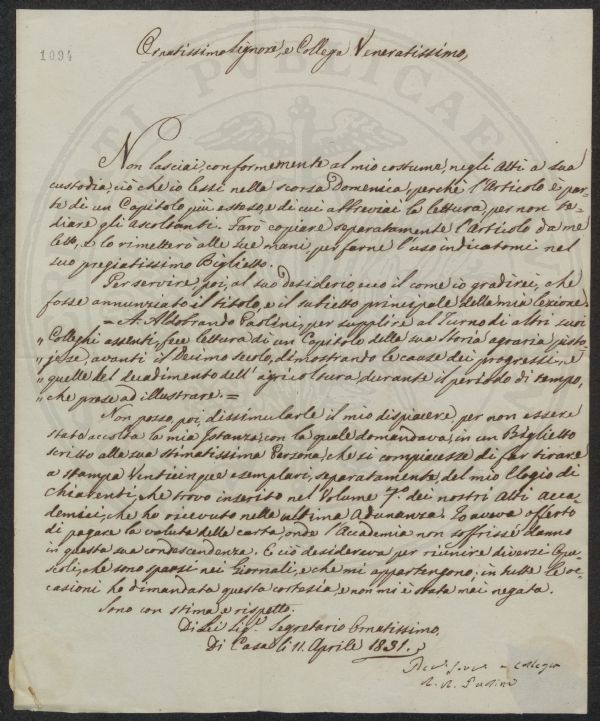 1094
Ornatissimo Signore, e Collega Veneratissimo,
Non lasciai, conformemente al mio costume, negli Atti a sua
custodia, ciò che io lessi nella scorsa Domenica, perchè l'Articolo è par-
te di un Capitolo più esteso, e di cui abbreviai la lettura, per non te-
diare gli ascoltanti. Farò copiare separatamente l'Articolo da me
letto, e lo rimetterò alle sue mani, per farne l'uso indicatomi nel
suo pregiatissimo Biglietto.
Per servire, poi, al suo desiderio, ecco il come io gradirei, che
fosse annunziato il titolo, e il subietto principale della mia Lezione.
= A. Aldobrando Paolini, per supplire al Turno di altri suoi
„ Colleghi assenti, fece lettura di un Capitolo della sua Storia agraria pisto-
„ jese, avanti il Decimo Secolo, dimostrando le cause dei progressi, e
„ quelle del decadimento dell'agricoltura durante il periodo di tempo,
„ che prese ad illustrare. =
Non posso, poi, dissimularle il mio dispiacere per non essere
stata accolta la mia Istanza, con la quale domandava, in un Biglietto
scritto alla sua stimatissima Persona, che si compiacesse di far tirare
a stampa Venticinque esemplari, separatamente, del mio Elogio di
Chiarenti, che trovo inserito nel Volume 7.º dei nostri Atti acca-
demici, che ho ricevuto nella ultima Adunanza. Io aveva offerto
di pagare la valuta della carta, onde l'Accademia non soffrisse danno
in questa sua condescendenza. E ciò desiderava per riunire diversi Opus-
coli, che sono sparsi nei Giornali, e che mi appartengono; in tutte le oc-
casioni ho dimandata questa cortesia, e non mi è stata mai negata.
Sono con stima e rispetto.
Di Lei Sig.r Segretario Ornatissimo,
Di Casa li 11. Aprile 1831.
e Collega